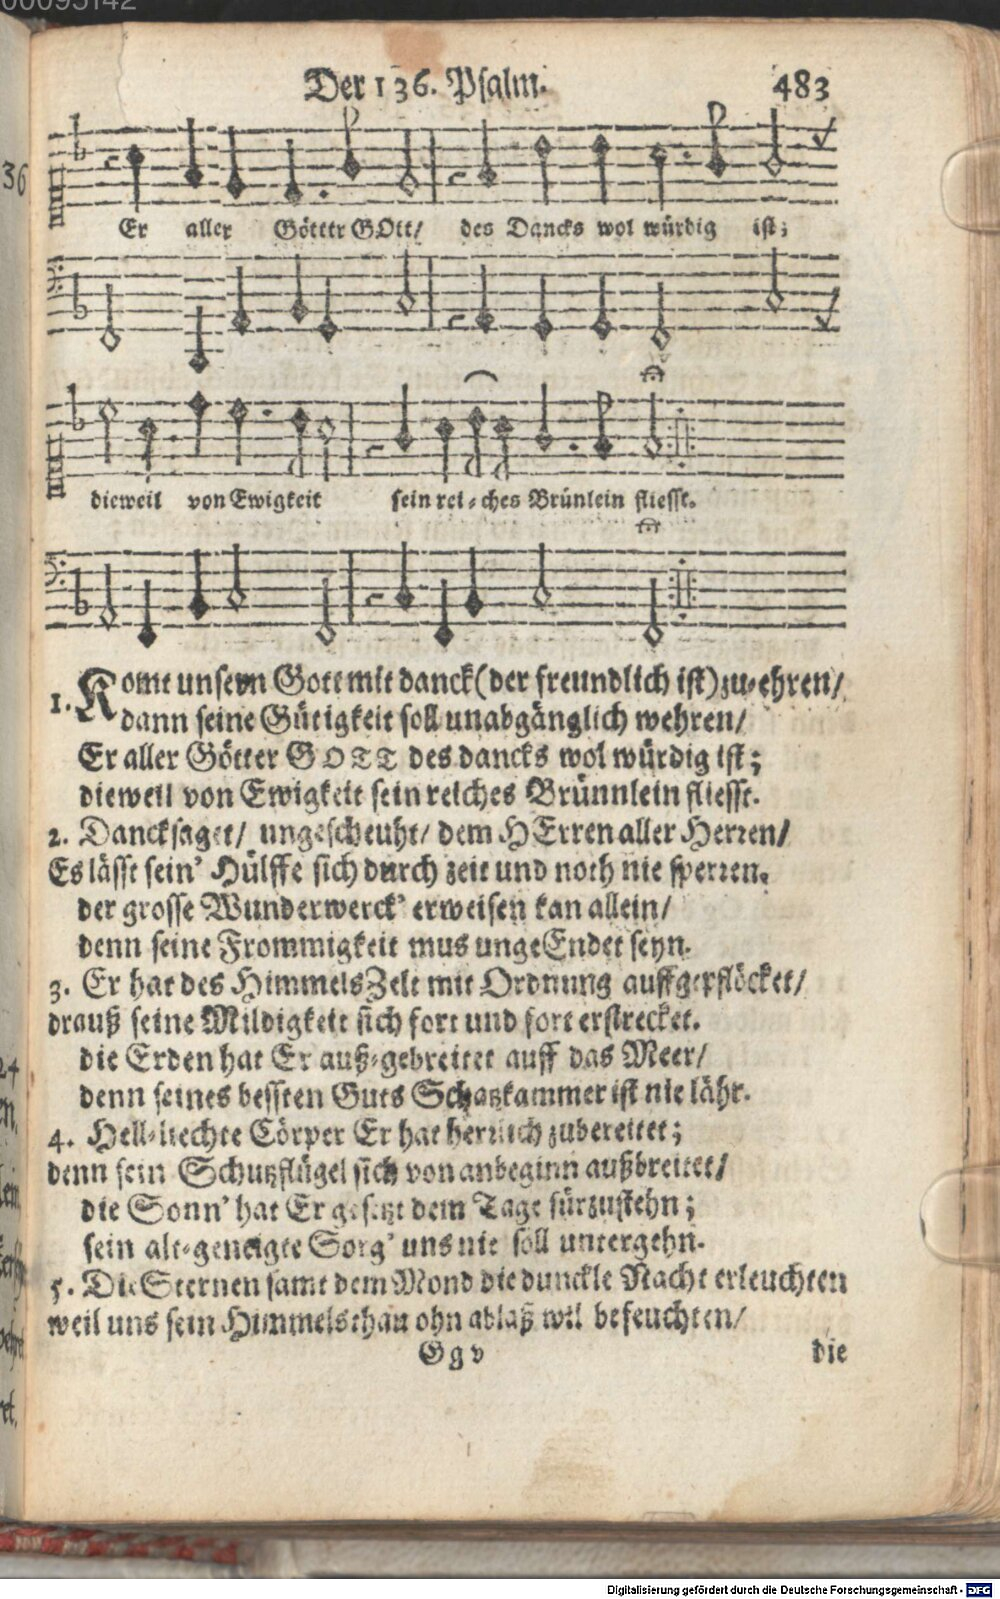 00095142
Der 136. Psalm. 483
36
Er aller Götter GOtt/ des Dancks wol würdig ist;
dieweil von Ewigkeit sein rei-ches Brünlein fliesst.
1. Komt unserm Gott mit danck (der freundlich ist) zu-ehren/
dann seine Gütigkeit soll unabgänglich wehren/
Er aller Götter GOTT des dancks wol würdig ist;
dieweil von Ewigkeit sein reiches Brünnlein fliesst.
2. Dancksaget/ ungescheuht/ dem HErren aller Herren/
Es lässt sein' Hülffe sich durch zeit und noth nie sperren.
der grosse Wunderwerck' erweisen kan allein/
denn seine Frommigkeit mus ungeEndet seyn.
3. Er hat des Himmels Zelt mit Ordnung auffgepflöcket/
drauß seine Mildigkeit sich fort und fort erstrecket.
die Erden hat Er auß-gebreitet auff das Meer/
denn seines bessten Guts Schatzkammer ist nie lähr.
4. Hell-liechte Cörper Er hat herrlich zubereitet;
denn sein Schutzflügel sich von anbeginn außbreitet/
die Sonn' hat Er gesetzt dem Tage fürzustehn;
sein alt-geneigte Sorg' uns nie soll untergehn.
5. Die Sternen samt dem Mond die dunckle Nacht erleuchten
weil uns sein Himmelsthau ohn ablaß wil befeuchten/
Gg v die
Digitalisierung gefördert durch die Deutsche Forschungsgemeinschaft - DFG